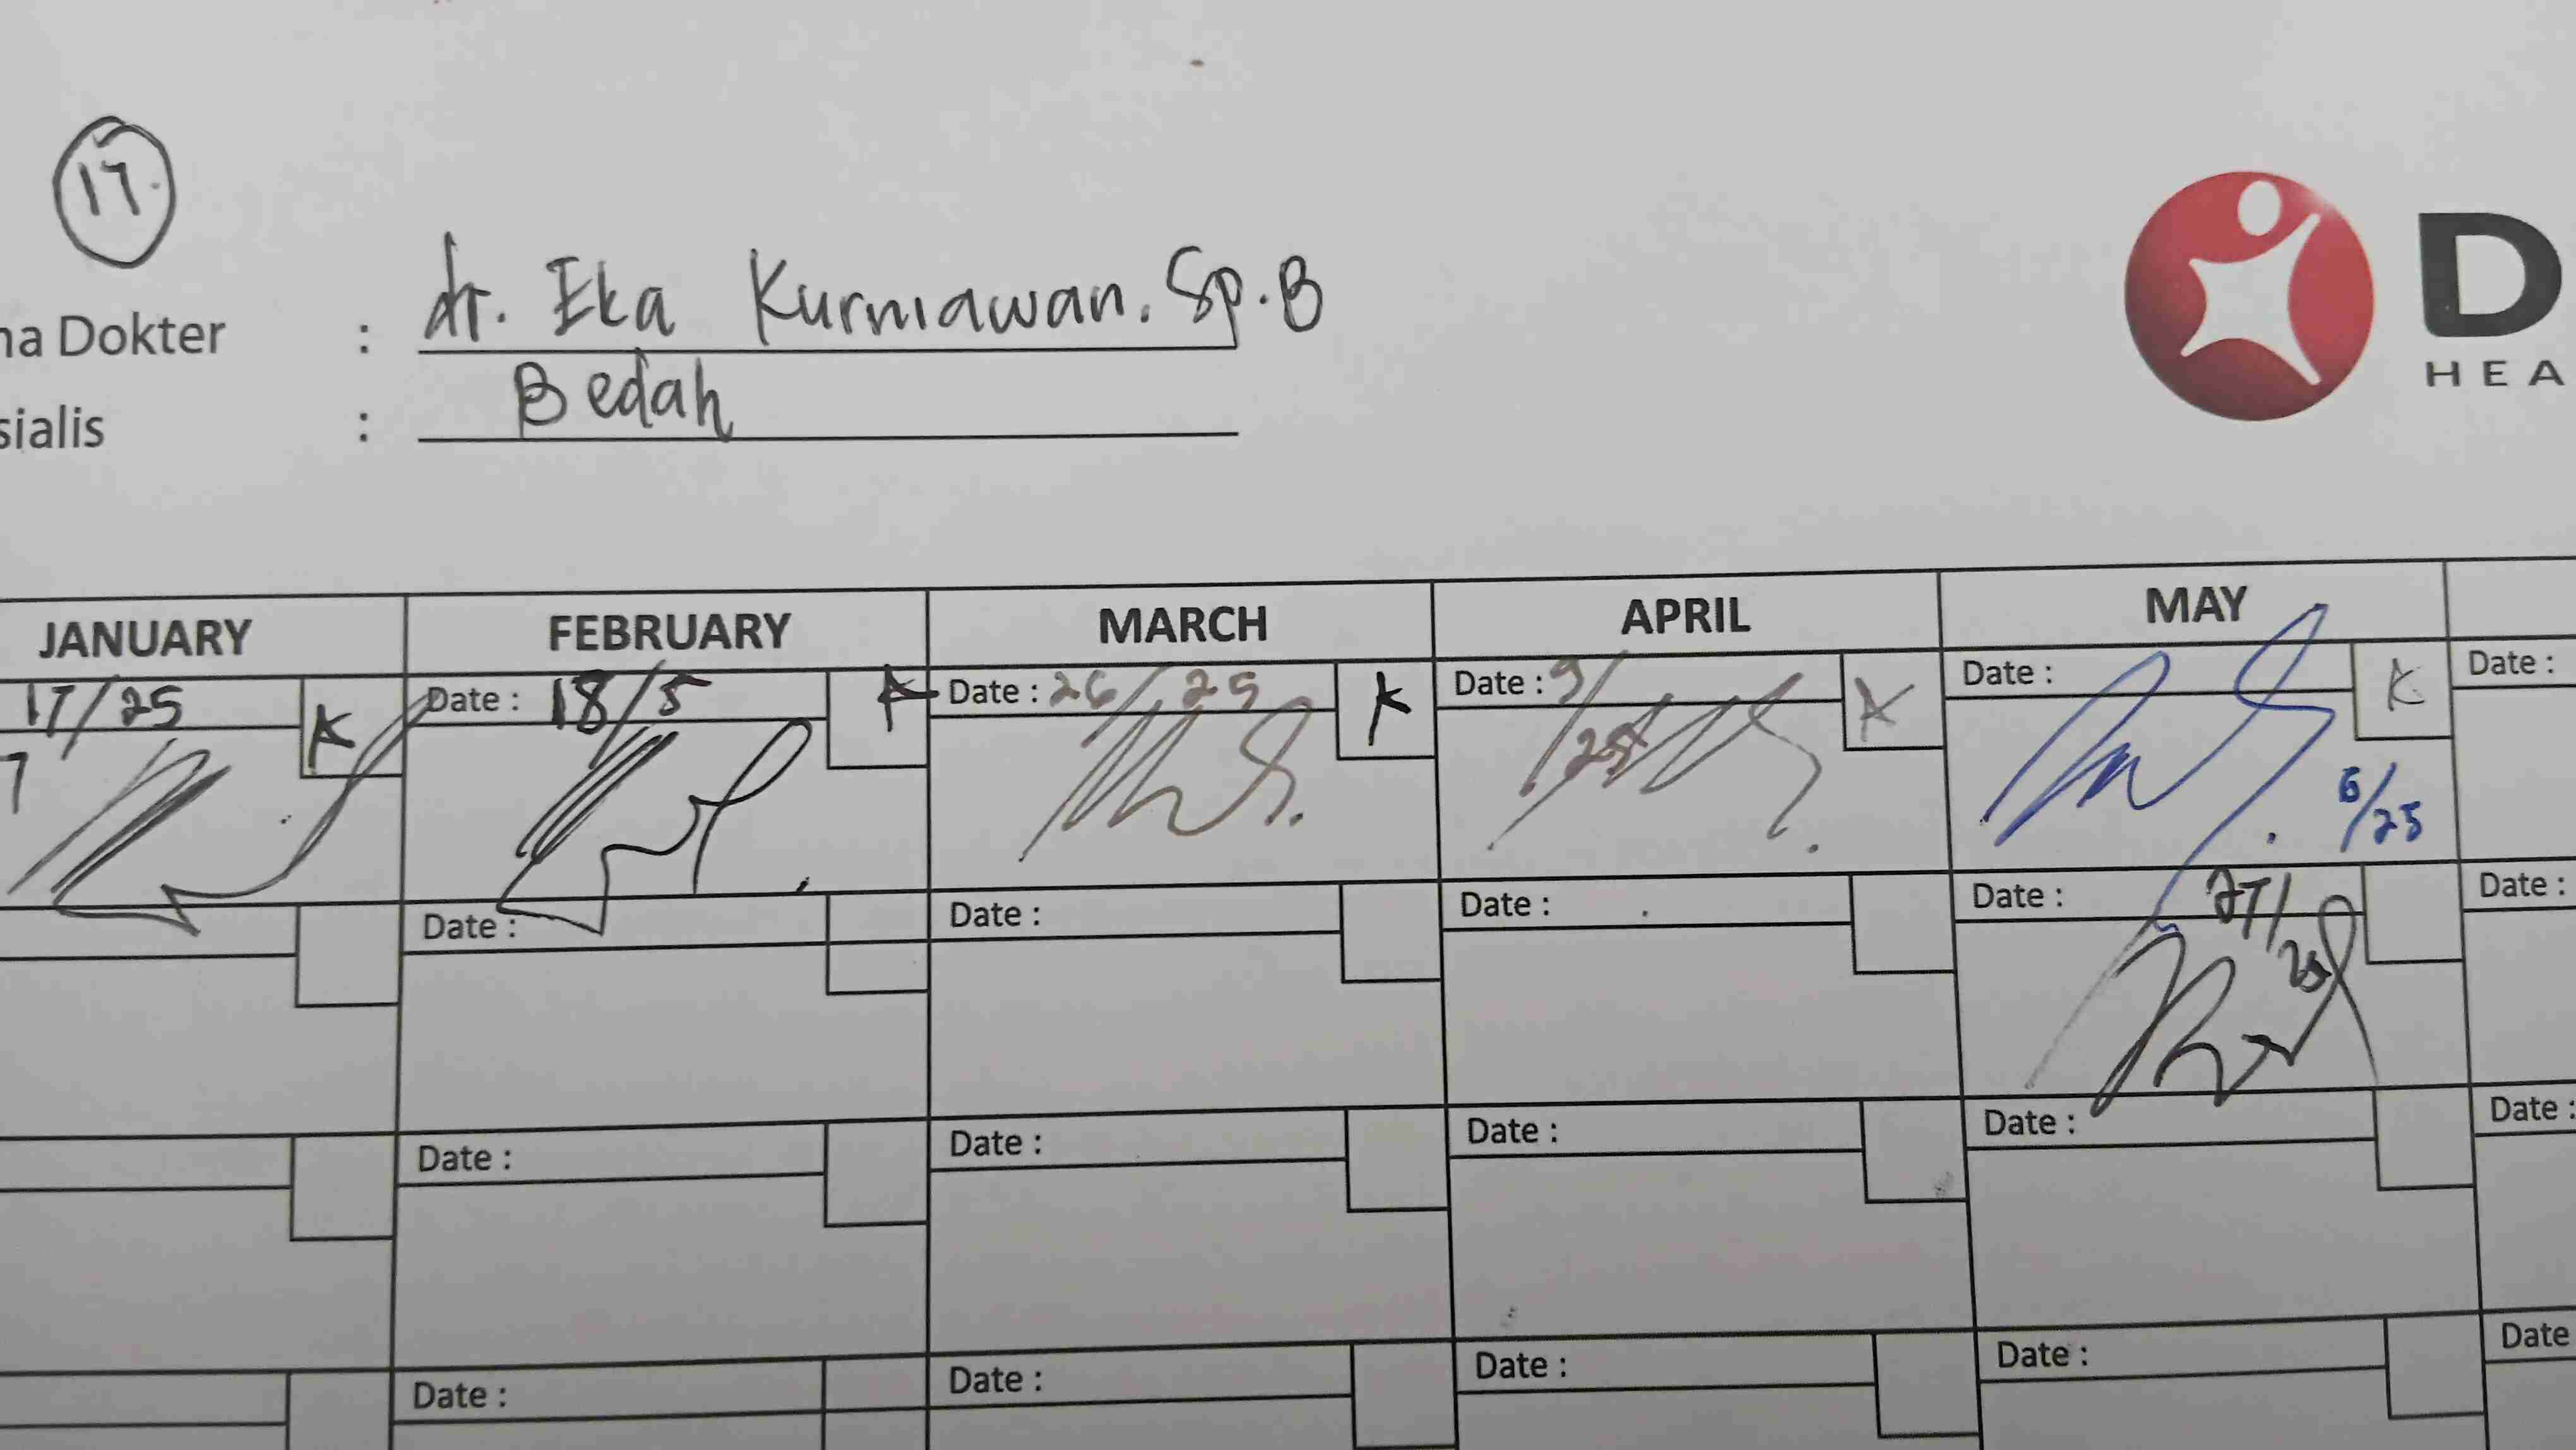 17
na Dokter : dr. Eka Kurniawan. Sp.B
sialis : Bedah
D
HEA
JANUARY FEBRUARY MARCH APRIL MAY
17/25 A Date : 18/5 A Date : 26/25 A Date : 9/25 A Date : A Date :
7
6/25
Date : Date : Date : Date : 27/25 Date :
Date : Date : Date : Date : Date :
Date : Date : Date : Date : Date